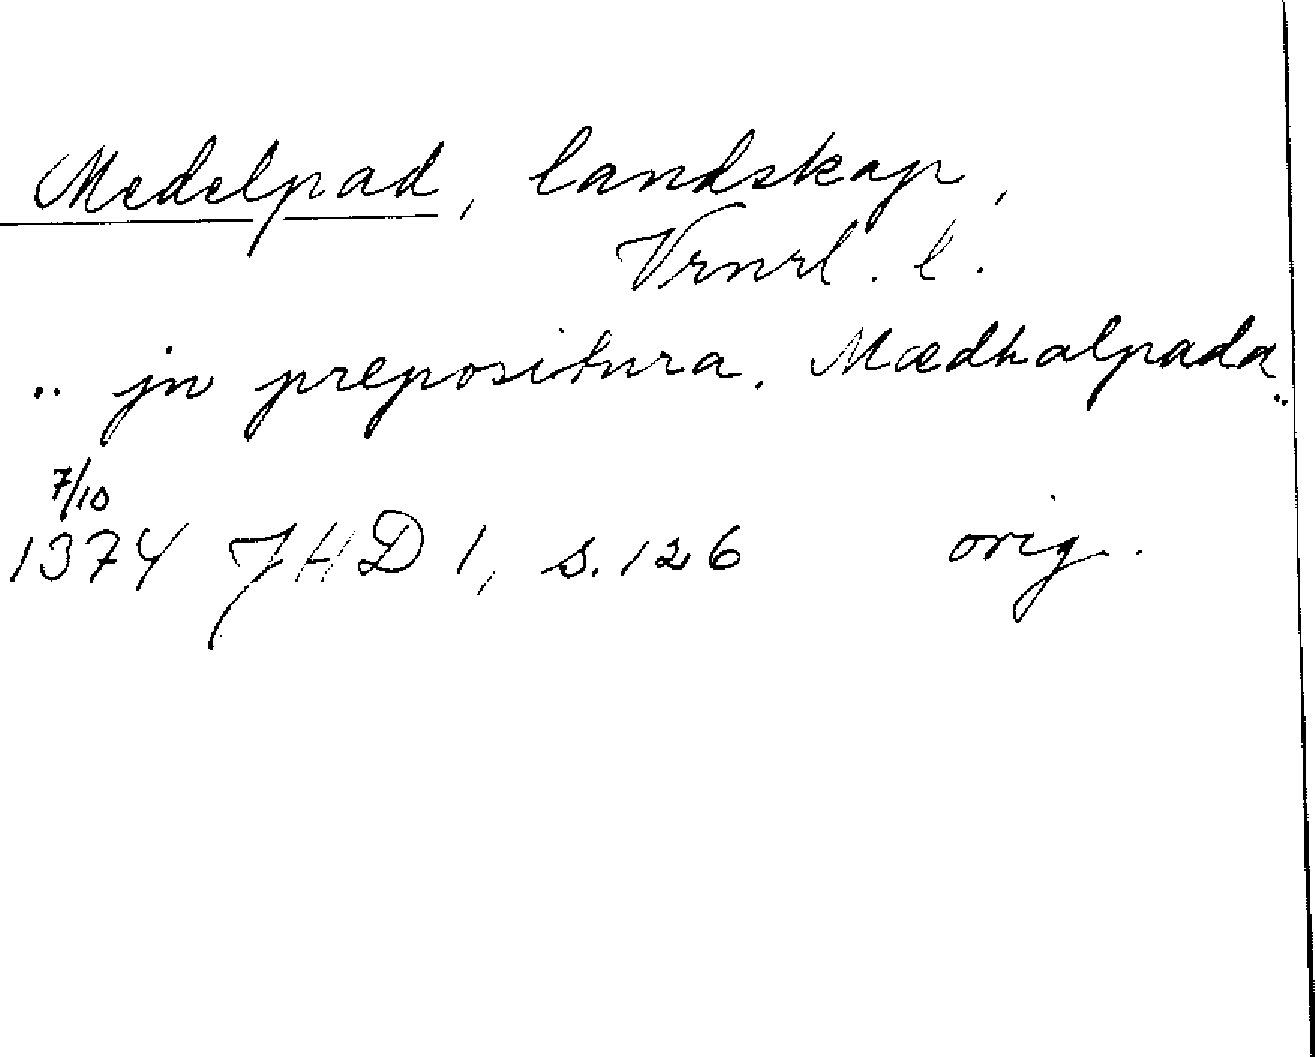 Medelpad, landskap,
Vrnrl. l.
.. jn prepositura. Mædhalpada..
7/10
1374 JHD 1, s. 126 orig.